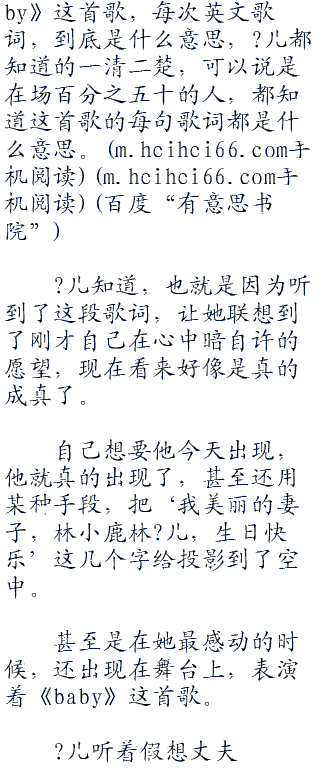 by》这首歌，每次英文歌
词，到底是什么意思，?儿都
知道的一清二楚，可以说是
在场百分之五十的人，都知
道这首歌的每句歌词都是什
么意思。(m.hcihci66.com手
机阅读)(m.hcihci66.com手
机阅读)(百度“有意思书
院”)
?儿知道，也就是因为听
到了这段歌词，让她联想到
了刚才自己在心中暗自许的
愿望，现在看来好像是真的
成真了。
自己想要他今天出现，
他就真的出现了，甚至还用
某种手段，把‘我美丽的妻
子，林小鹿林?儿，生日快
乐’这几个字给投影到了空
中。
甚至是在她最感动的时
候，还出现在舞台上，表演
着《baby》这首歌。
?儿听着假想丈夫